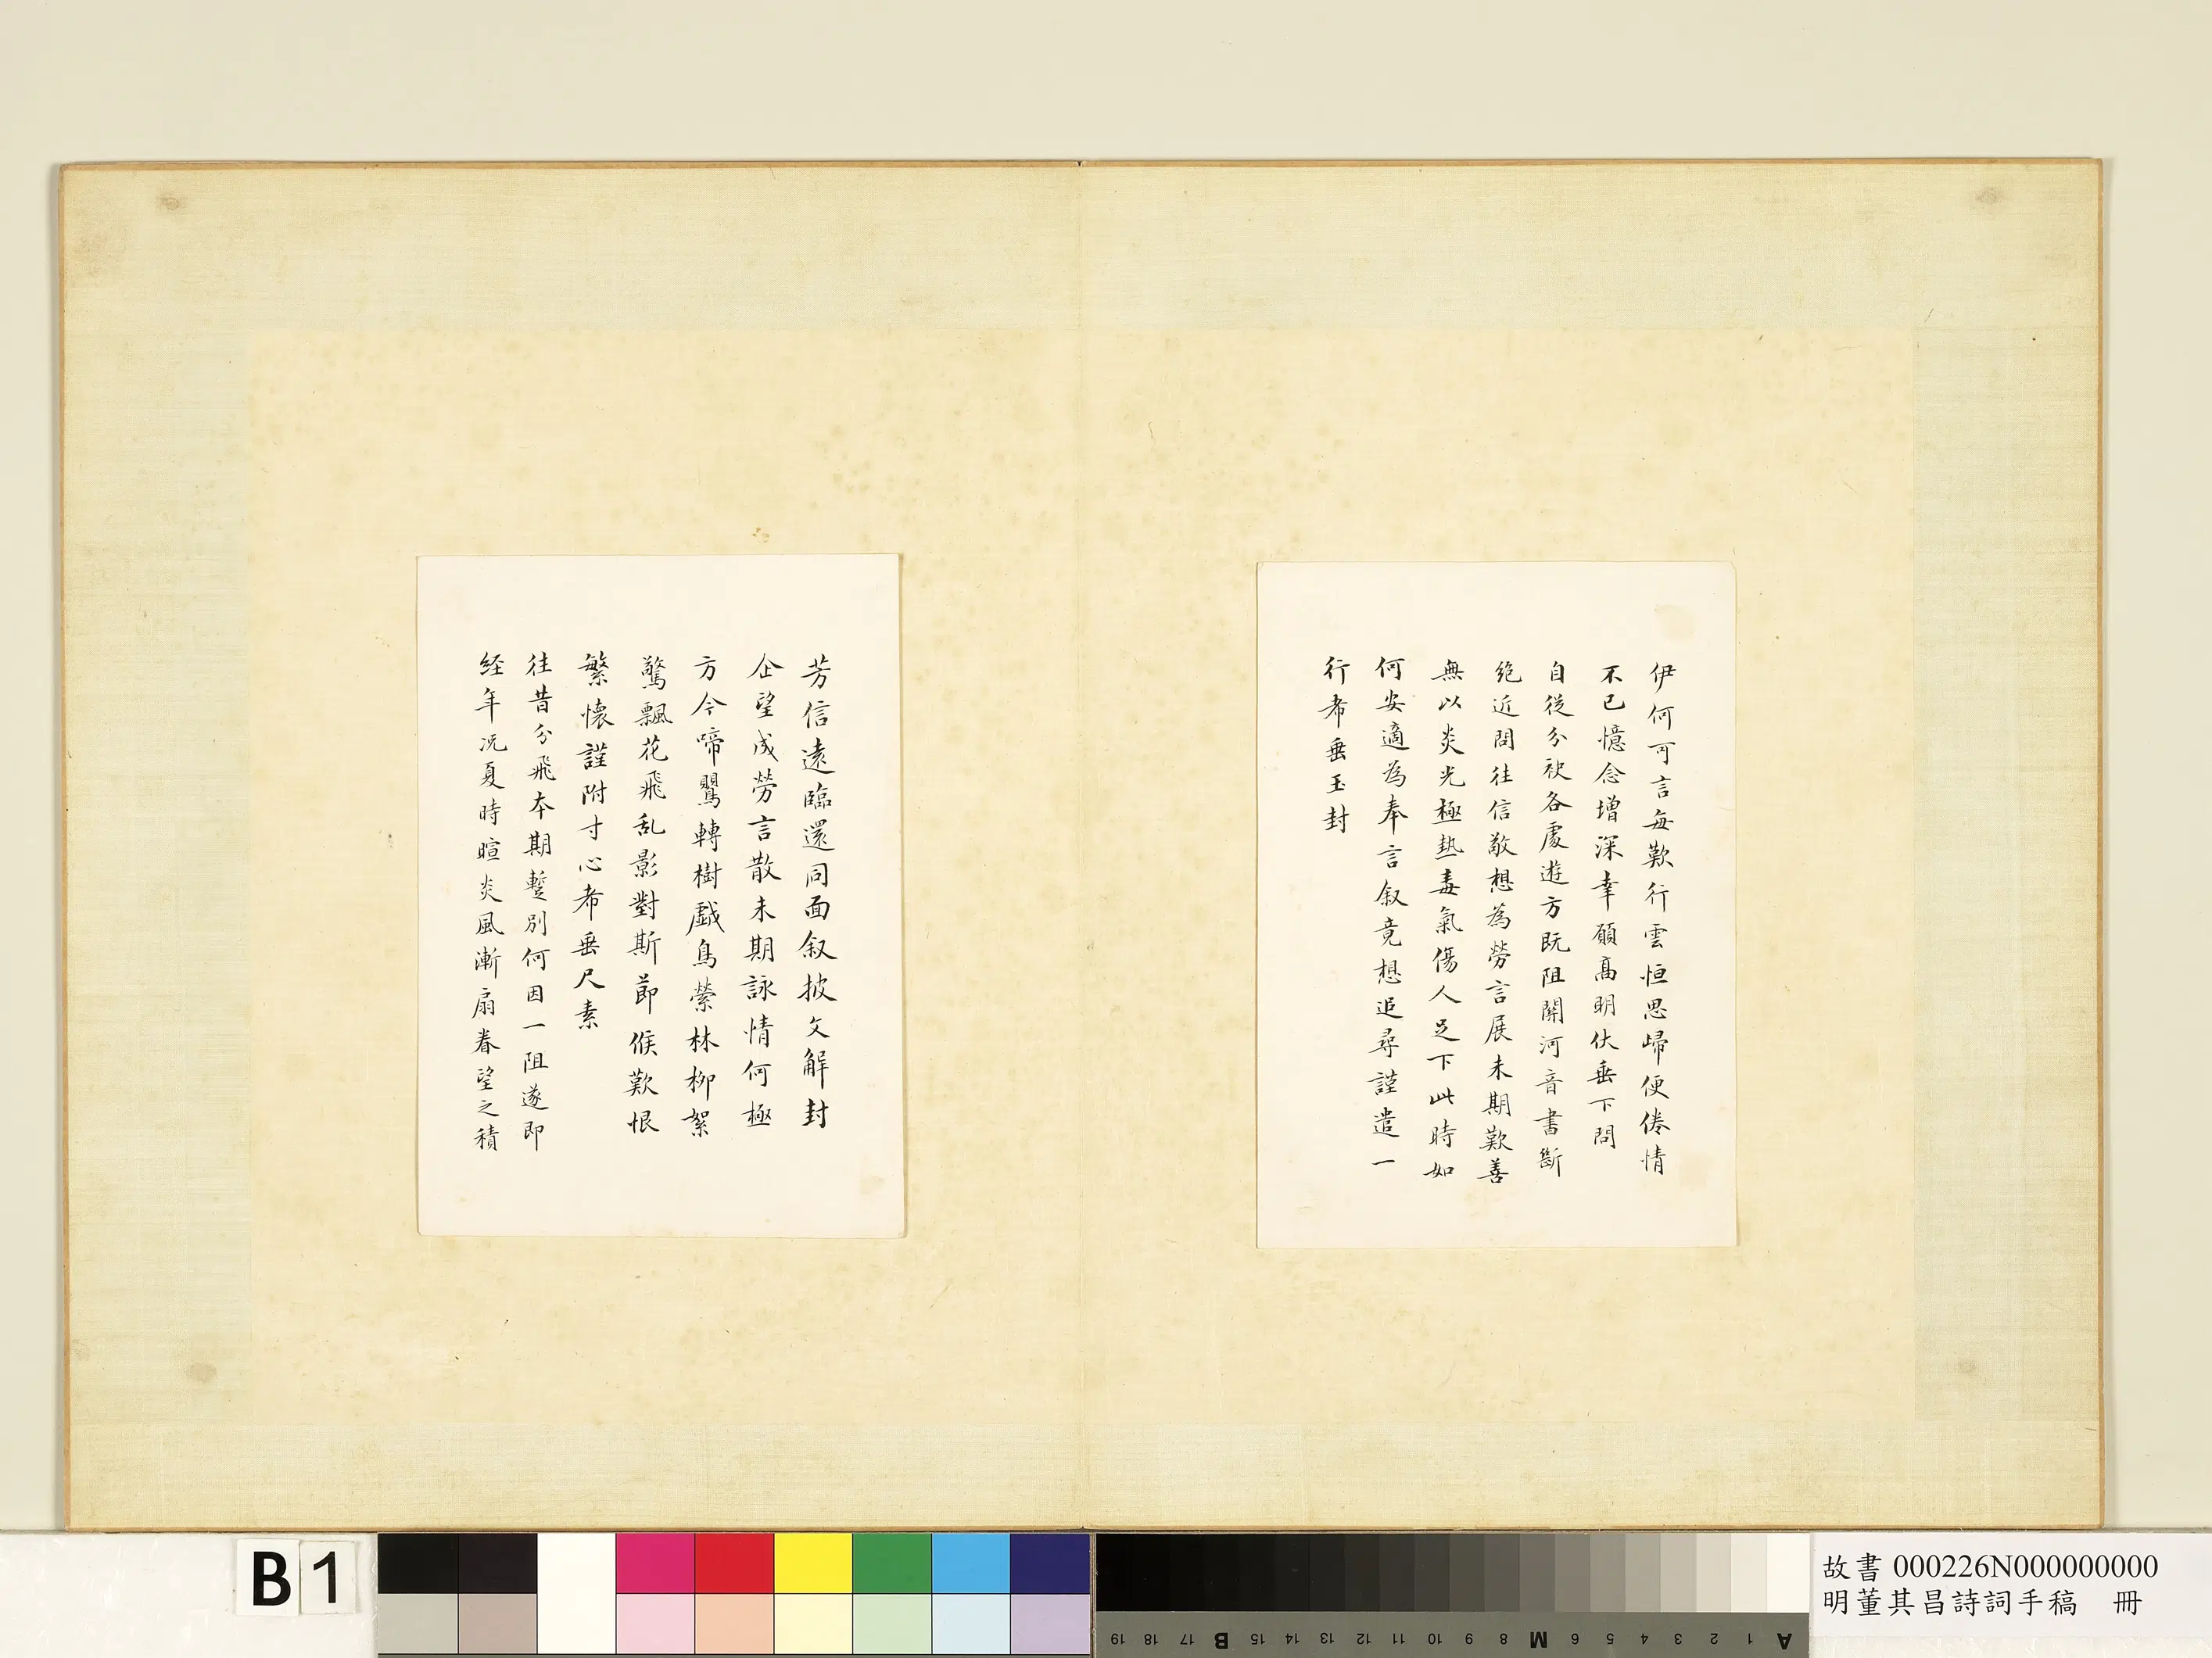 伊何可言每歎行雲恒思歸便倦情
不已憶念增深幸願高明伏垂下問
自從分袂各處遊方既阻關河音書斷
絕近問往信敬想為勞言展未期歎善
無以炎光極熱毒氣傷人足下此時如
何安適為奉言叙竟想追尋謹遣一
行希垂玉封
芳信遠臨還同面叙披文解封
企望成勞言散未期詠情何極
方今啼鸎轉樹戲鳥縈林柳絮
驚飄花飛乱影對斯節候歎恨
繁懷謹附寸心希垂尺素
往昔分飛本期蹔別何因一阻遂即
経年况夏時暄炎風漸扇眷望之積
B1
B M A
19 18 17 15 14 13 12 11 10 9 8 6 5 4 3 2 1
故書 000226N000000000
明董其昌詩詞手稿 冊